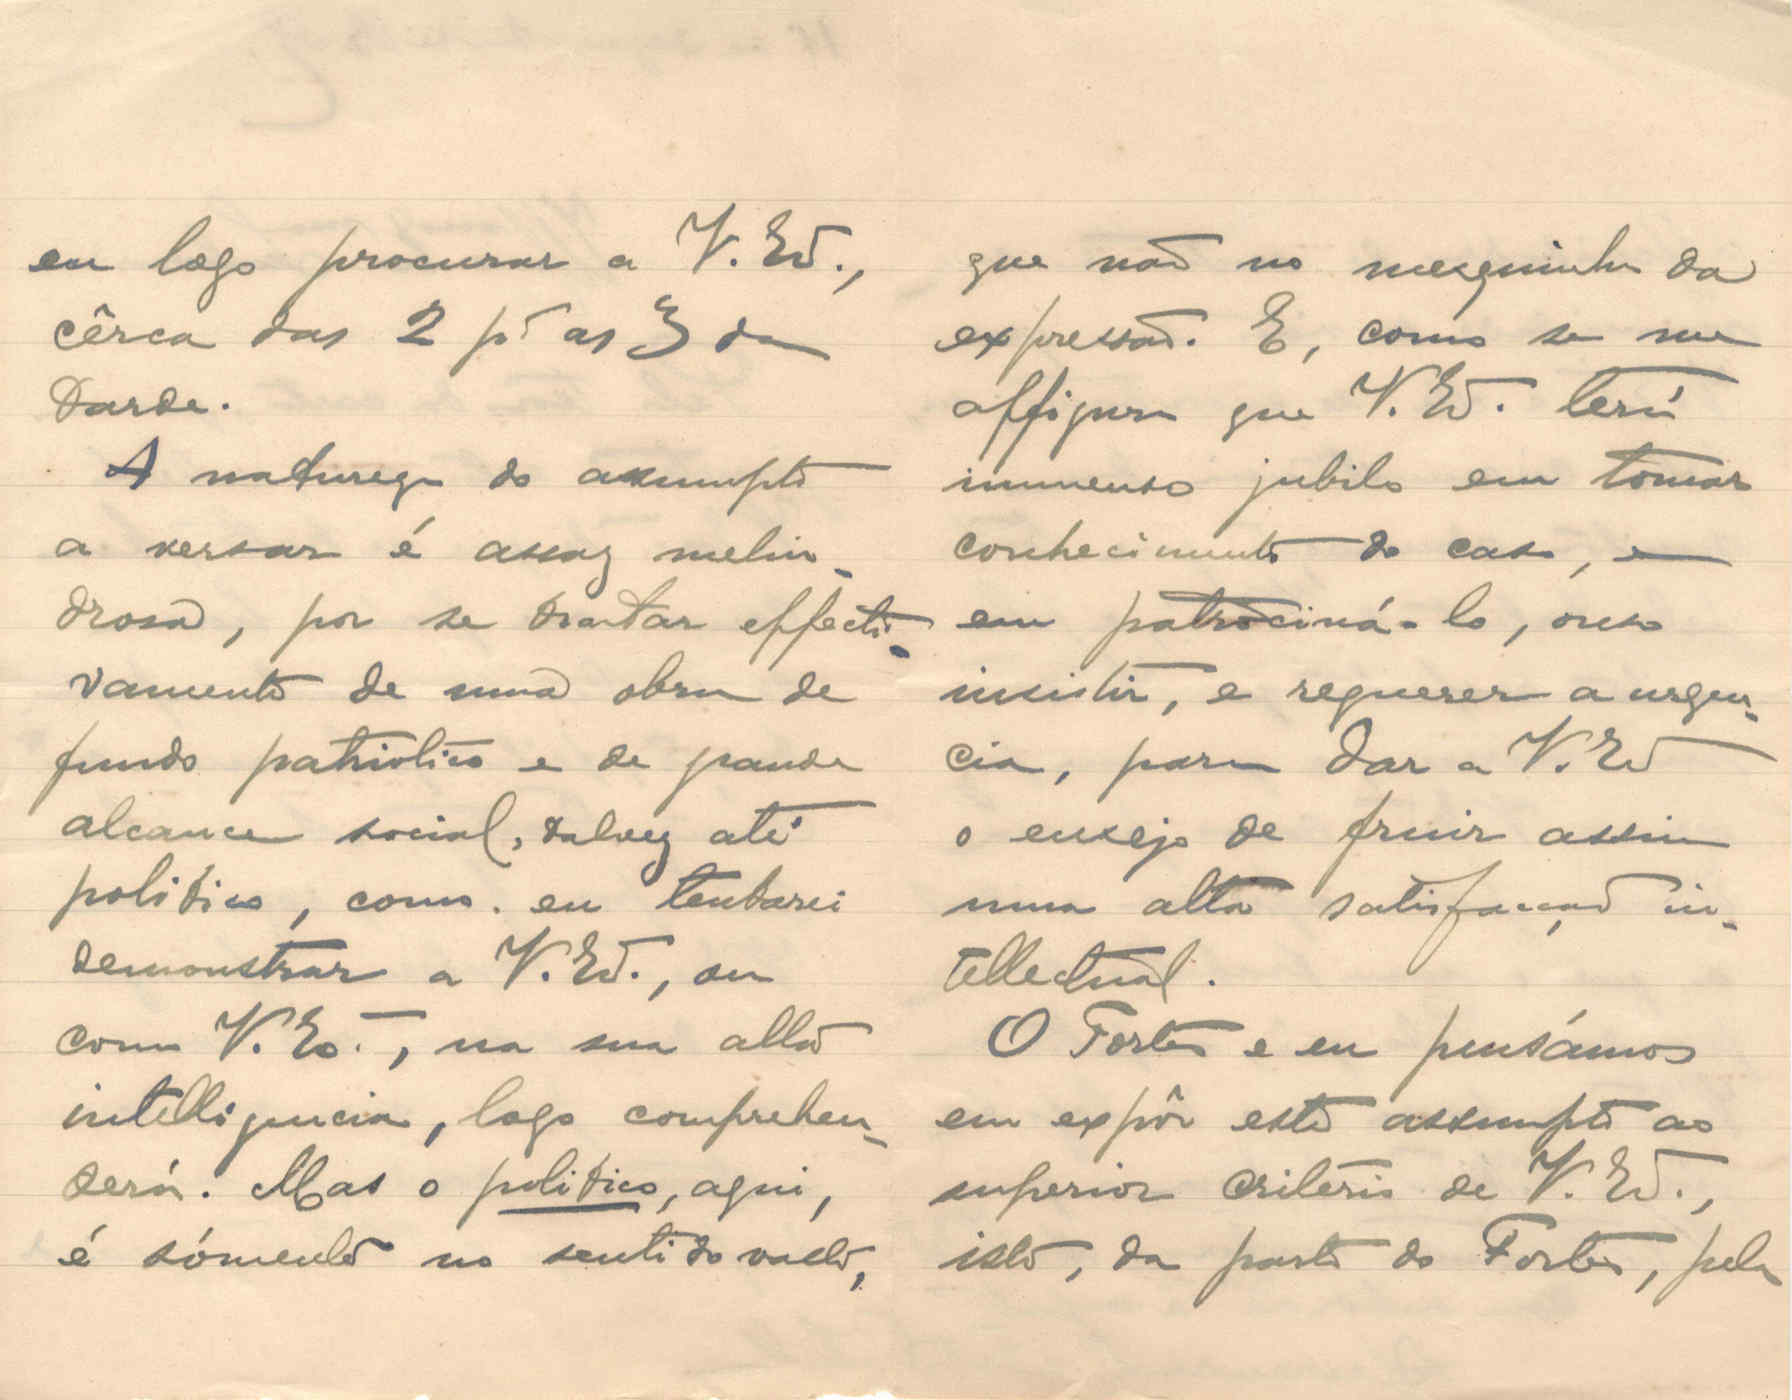 eu logo procurar a V. Exª.,
cêrca das 2 pª as 3 da
tarde.
A natureza do assumpto
a versar é assaz melin-
drosa, por se tratar effecti-
vamente de uma obra de
fundo patriotico e de grande
alcance social, talvez até
politico, como eu tentarei
demonstrar a V. Exª., ou
como V. Exª., na sua alta
intelligencia, logo comprehen-
derá. Mas o politico, aqui,
é sómente no sentido vasto,
que não no mesquinho da
expressão. E, como se me
affigura que V. Exª. terá
immenso jubilo em tomar
conhecimento do caso, e
em patrociná-lo, ouso
insistir, e requerer a urgen-
cia, para dar a V. Exª
o ensejo de fruir assim
uma alta satisfacção in-
tellectual.
O Fortes e eu pensámos
em expôr este assumpto ao
superior criterio de V. Exª.,
isto, da parte do Fortes, pela